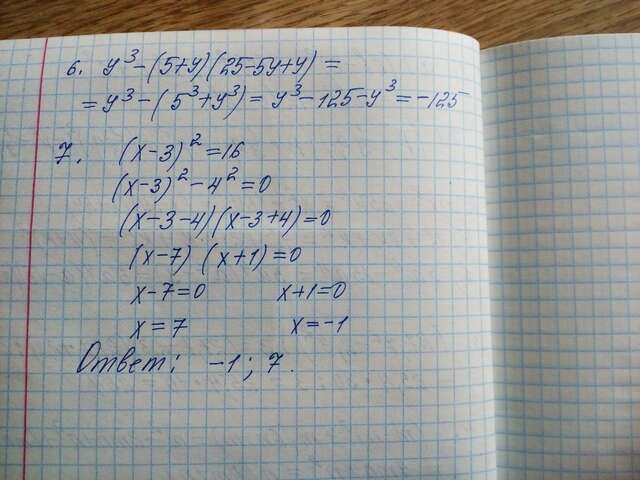 6. y³-(5+y)(25-5y+y)=
=y³-(5³+y³)= y³-125-y³=-125
7. (x-3)²=16
(x-3)²-4²=0
(x-3-4)(x-3+4)=0
(x-7) (x+1)=0
x-7=0 x+1=0
x=7 x=-1
Ответ: -1; 7.